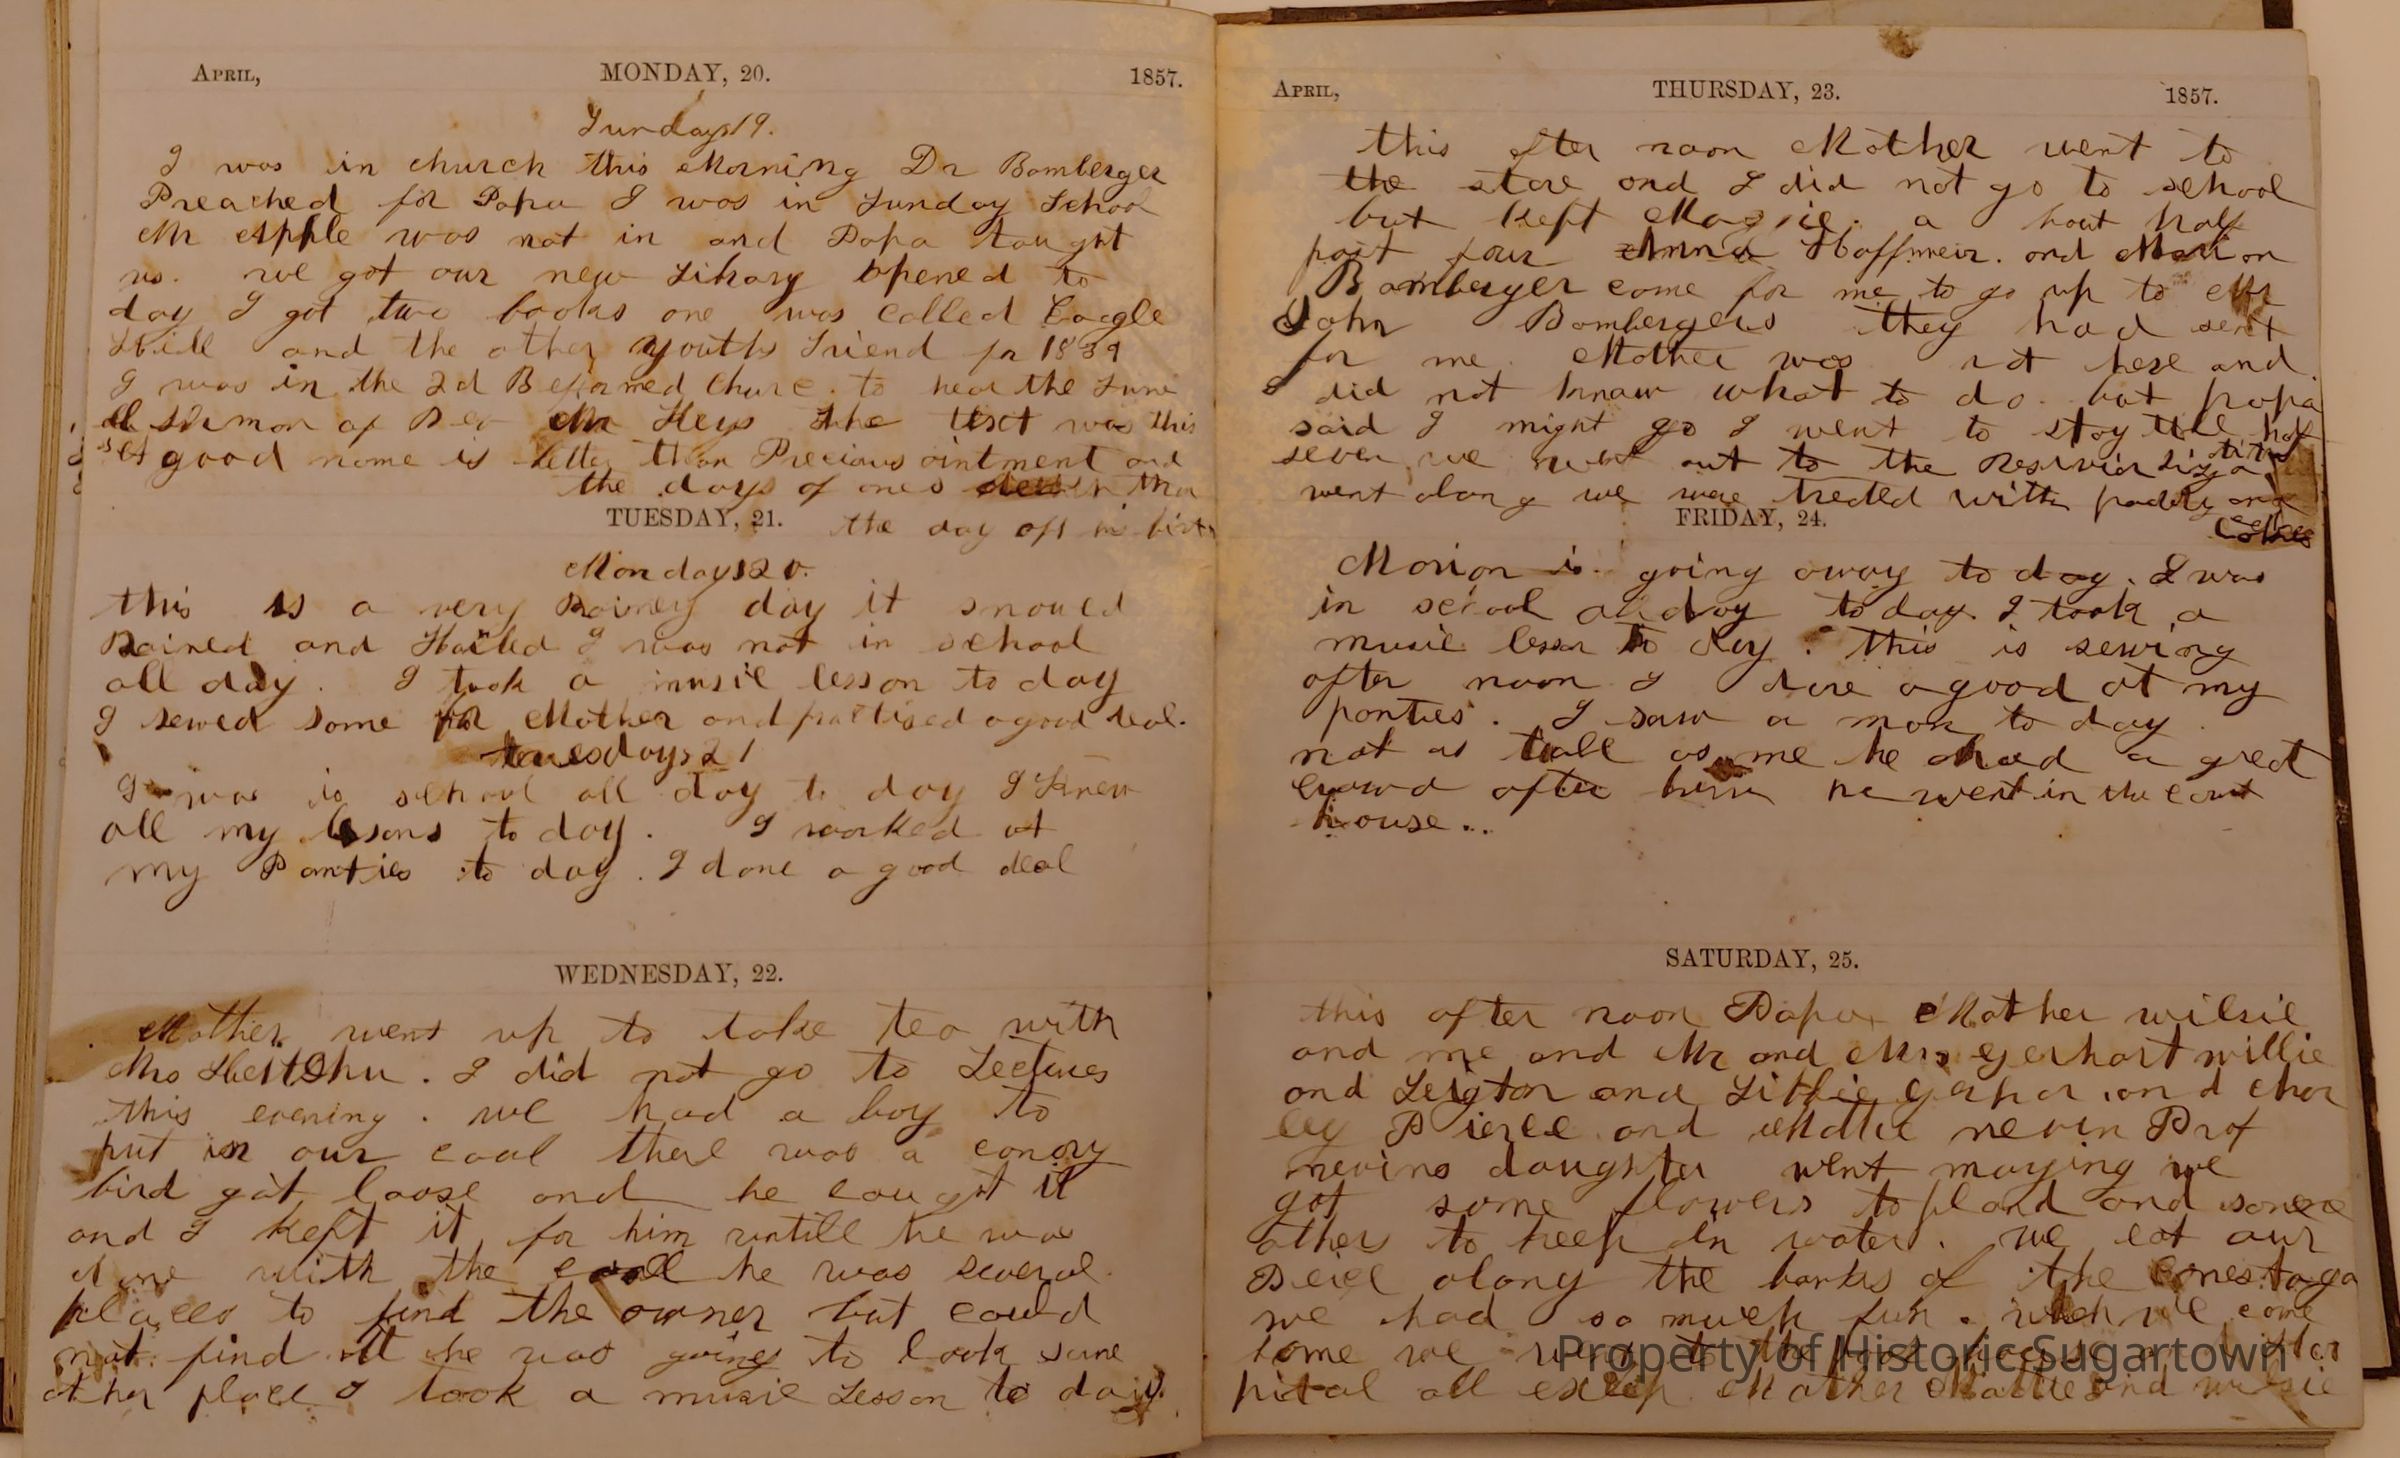 April, MONDAY, 20. 1857.
Sunday 19.
I was in church this Morning Dr Bomberger
Preached for Papa I was in Sunday School
Mr Apple was not in and Papa taught
us. we got our new Library opened to
day I got two books one was called
and the other youths Friend for 1839
I was in the 2d Reformed Churc. to hear the
sermon of Mr Keys the text was this
good name is better than Precious ointment and
the days of ones
TUESDAY, 21. the day of his birth
Monday 20.
this is a very Rainey day it snoued
Rained and Hailed I was not in school
all day. I took a music lesson to day
I sewed some for Mother and practised a good deal.
tuesday 21
I was in school all day to day I Knew
all my lesons to day. I worked at
my Panties to day. I done a good deal
WEDNESDAY, 22.
Mother went up to take tea with
Mrs. I did not go to Lectures
this evening. we had a boy to
put in our coal there was a canary
bird got loose and he caught it
and I kept it for him untill he was
done with the coal he was several
places to find the owner but could
not find it he was going to look some
other place I took a music Lesson to day.
April, THURSDAY, 23. 1857.
this after noon Mother went to
the store and I did not go to school
but kept Maggie. a bout half
past four Anna Hoffmeir. and Marion
Bomberger come for me to go up to Mr
John Bombergers they had sent
for me Mother was not here and
I did not know what to do. but papa
said I might go I went to stay till half
seven we went out to the
went along we were treated with and
FRIDAY, 24.
Marion is going away to day. I was
in school all day to day. I took a
music leson to day. This is sewing
after noon I done a good at my
panties. I saw a man to day
not as tall as me he had a great
crowd after him he went in the court
house..
SATURDAY, 25.
this after noon Papa Mother wilsie
and me and Mr and Mrs gerhart willie
and and and char
ley Pierce and Mattie nevin Prof
nevins daughter went maying we
got some flowers to pland and some
others to keep in water. we eat our
Peice along the banks of the Conestoga
we had so much fun. when we come
home we went to the poor house and
pital all excep Mother Mattie and wilsie
Property of Historic Sugartown